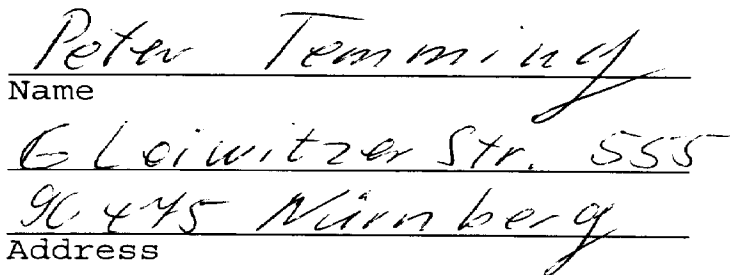 Peter Temming
Name
Gleiwitzer Str. 555
90475 Nürnberg
Address